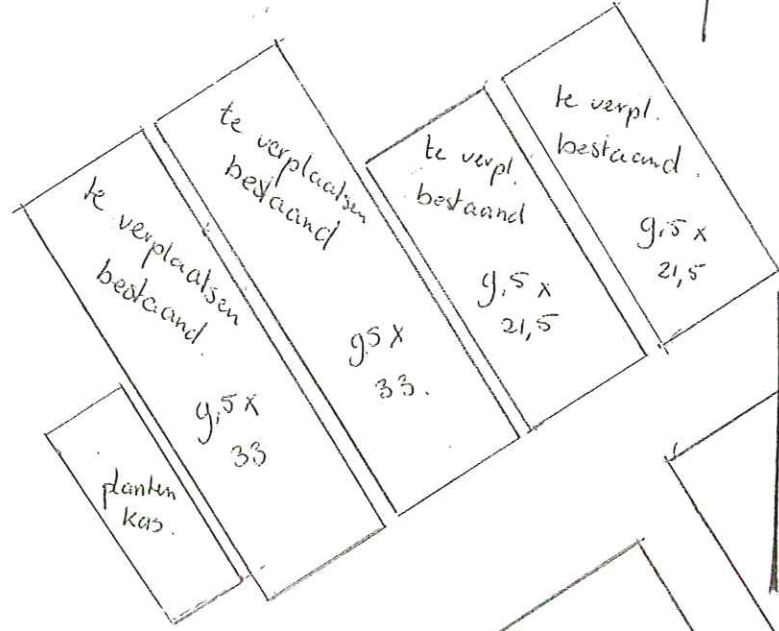 te verplaatsen
bestaand.
9,5 x
33
te verplaatsen
bestaand
9,5 x
33.
te verpl.
bestaand
9,5 x
21,5
te verpl.
bestaand.
9,5 x
21,5
planten
kas.